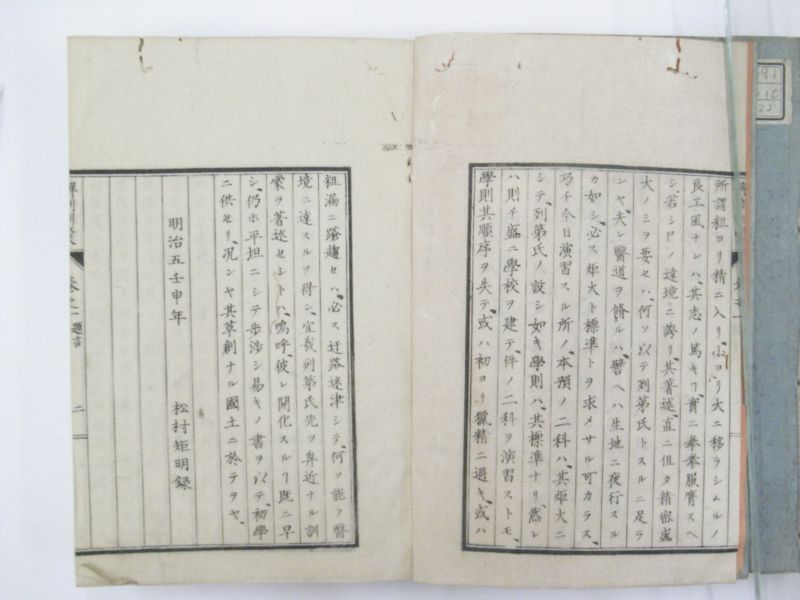 所謂粗ヨリ精ニ入リ、小ヨリ大ニ移ラシムルノ
良工風ナレハ、其志ノ篤キヿ、實ニ拳拳服膺スヘ
シ、若シ卩ノ遠境ニ誇リ、其著述、直ニ但タ精密盛
大ノミヲ要セハ、何ソ以テ列第氏トスルニ足ラ
ンヤ、夫レ醫道ヲ脩ルハ、譬ヘハ生地ニ夜行スル
カ如シ、必ス炬火ト標準トヲ求メサル可カラス、
乃チ今日演習スル所ノ、本預ノ二科ハ、其炬火ニ
シテ、列第氏ノ設シ如キ學則ハ、其標準ナリ、然レ
ハ則チ盛ニ學校ヲ建テ、件ノ二科ヲ演習ストモ、
學則其順序ヲ失テ、或ハ初ヨリ獵精ニ過キ、或ハ
粗漏ニ蹐趨セハ、必ス迂路迷津シテ、何ソ能ク醫
境ニ達スルヲ得ン、宜哉列第氏先ツ卑近ナル訓
蒙ヲ著述セシトハ、嗚呼、彼レ開化スルヿ既ニ早
シ、仍ホ平坦ニシテ歩渉シ易キノ書ヲ以テ、初學
ニ供セリ、况ンヤ其草創ナル國土ニ於テヲヤ、
明治五壬申年
松村矩明録
卷之一
題言
二